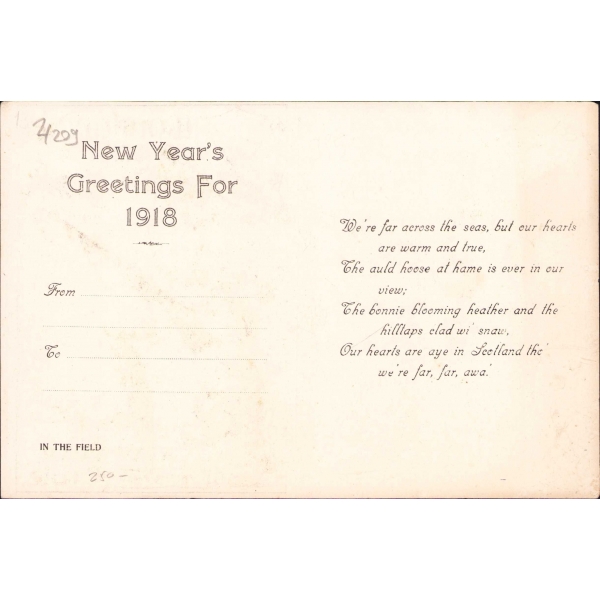 4209
New Year's
Greetings For
1918
From
To
IN THE FIELD
250-
We're far across the seas, but our hearts
are warm and true,
The auld hoose at hame is ever in our
view;
The bonnie blooming heather and the
hilltaps clad wi' snaw,
Our hearts are aye in Scotland tho'
we're far, far, awa'.